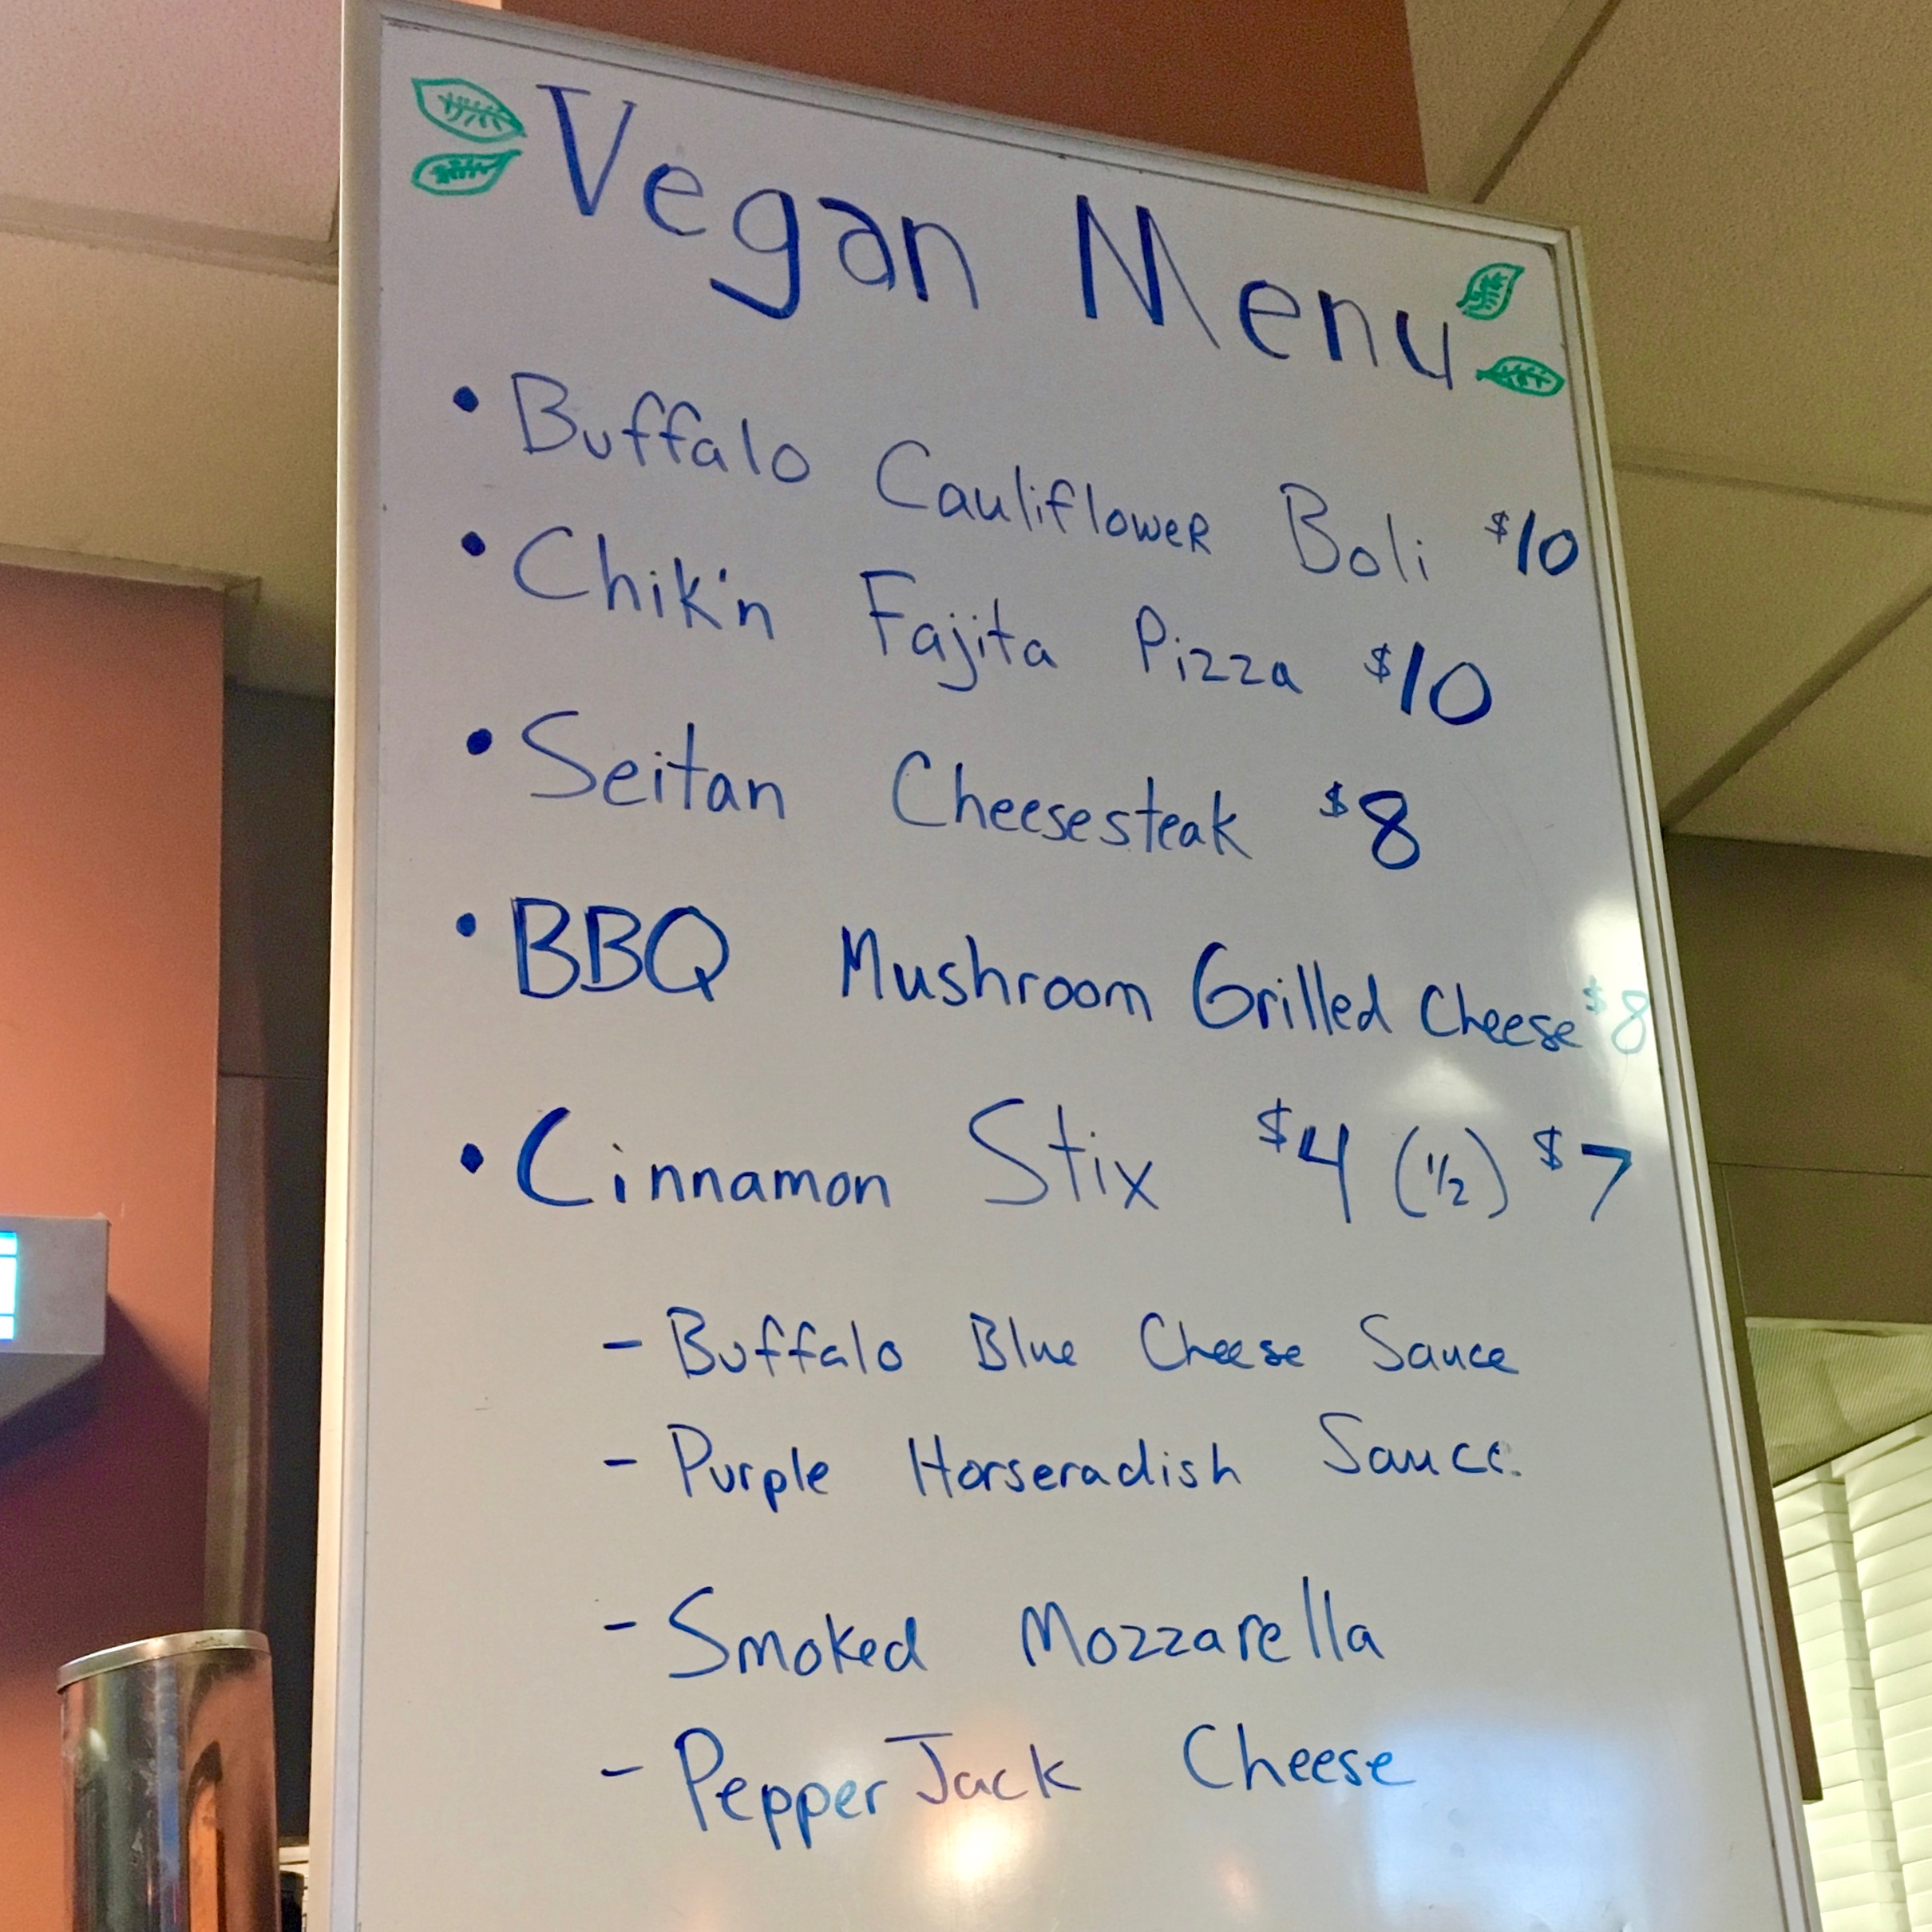 Vegan Menu
• Buffalo Cauliflower Boli $10
• Chik'n Fajita Pizza $10
• Seitan Cheesesteak $8
• BBQ Mushroom Grilled Cheese $8
• Cinnamon Stix $4 (1/2) $7
- Buffalo Blue Cheese Sauce
- Purple Horseradish Sauce.
- Smoked Mozzarella
- Pepper Jack Cheese